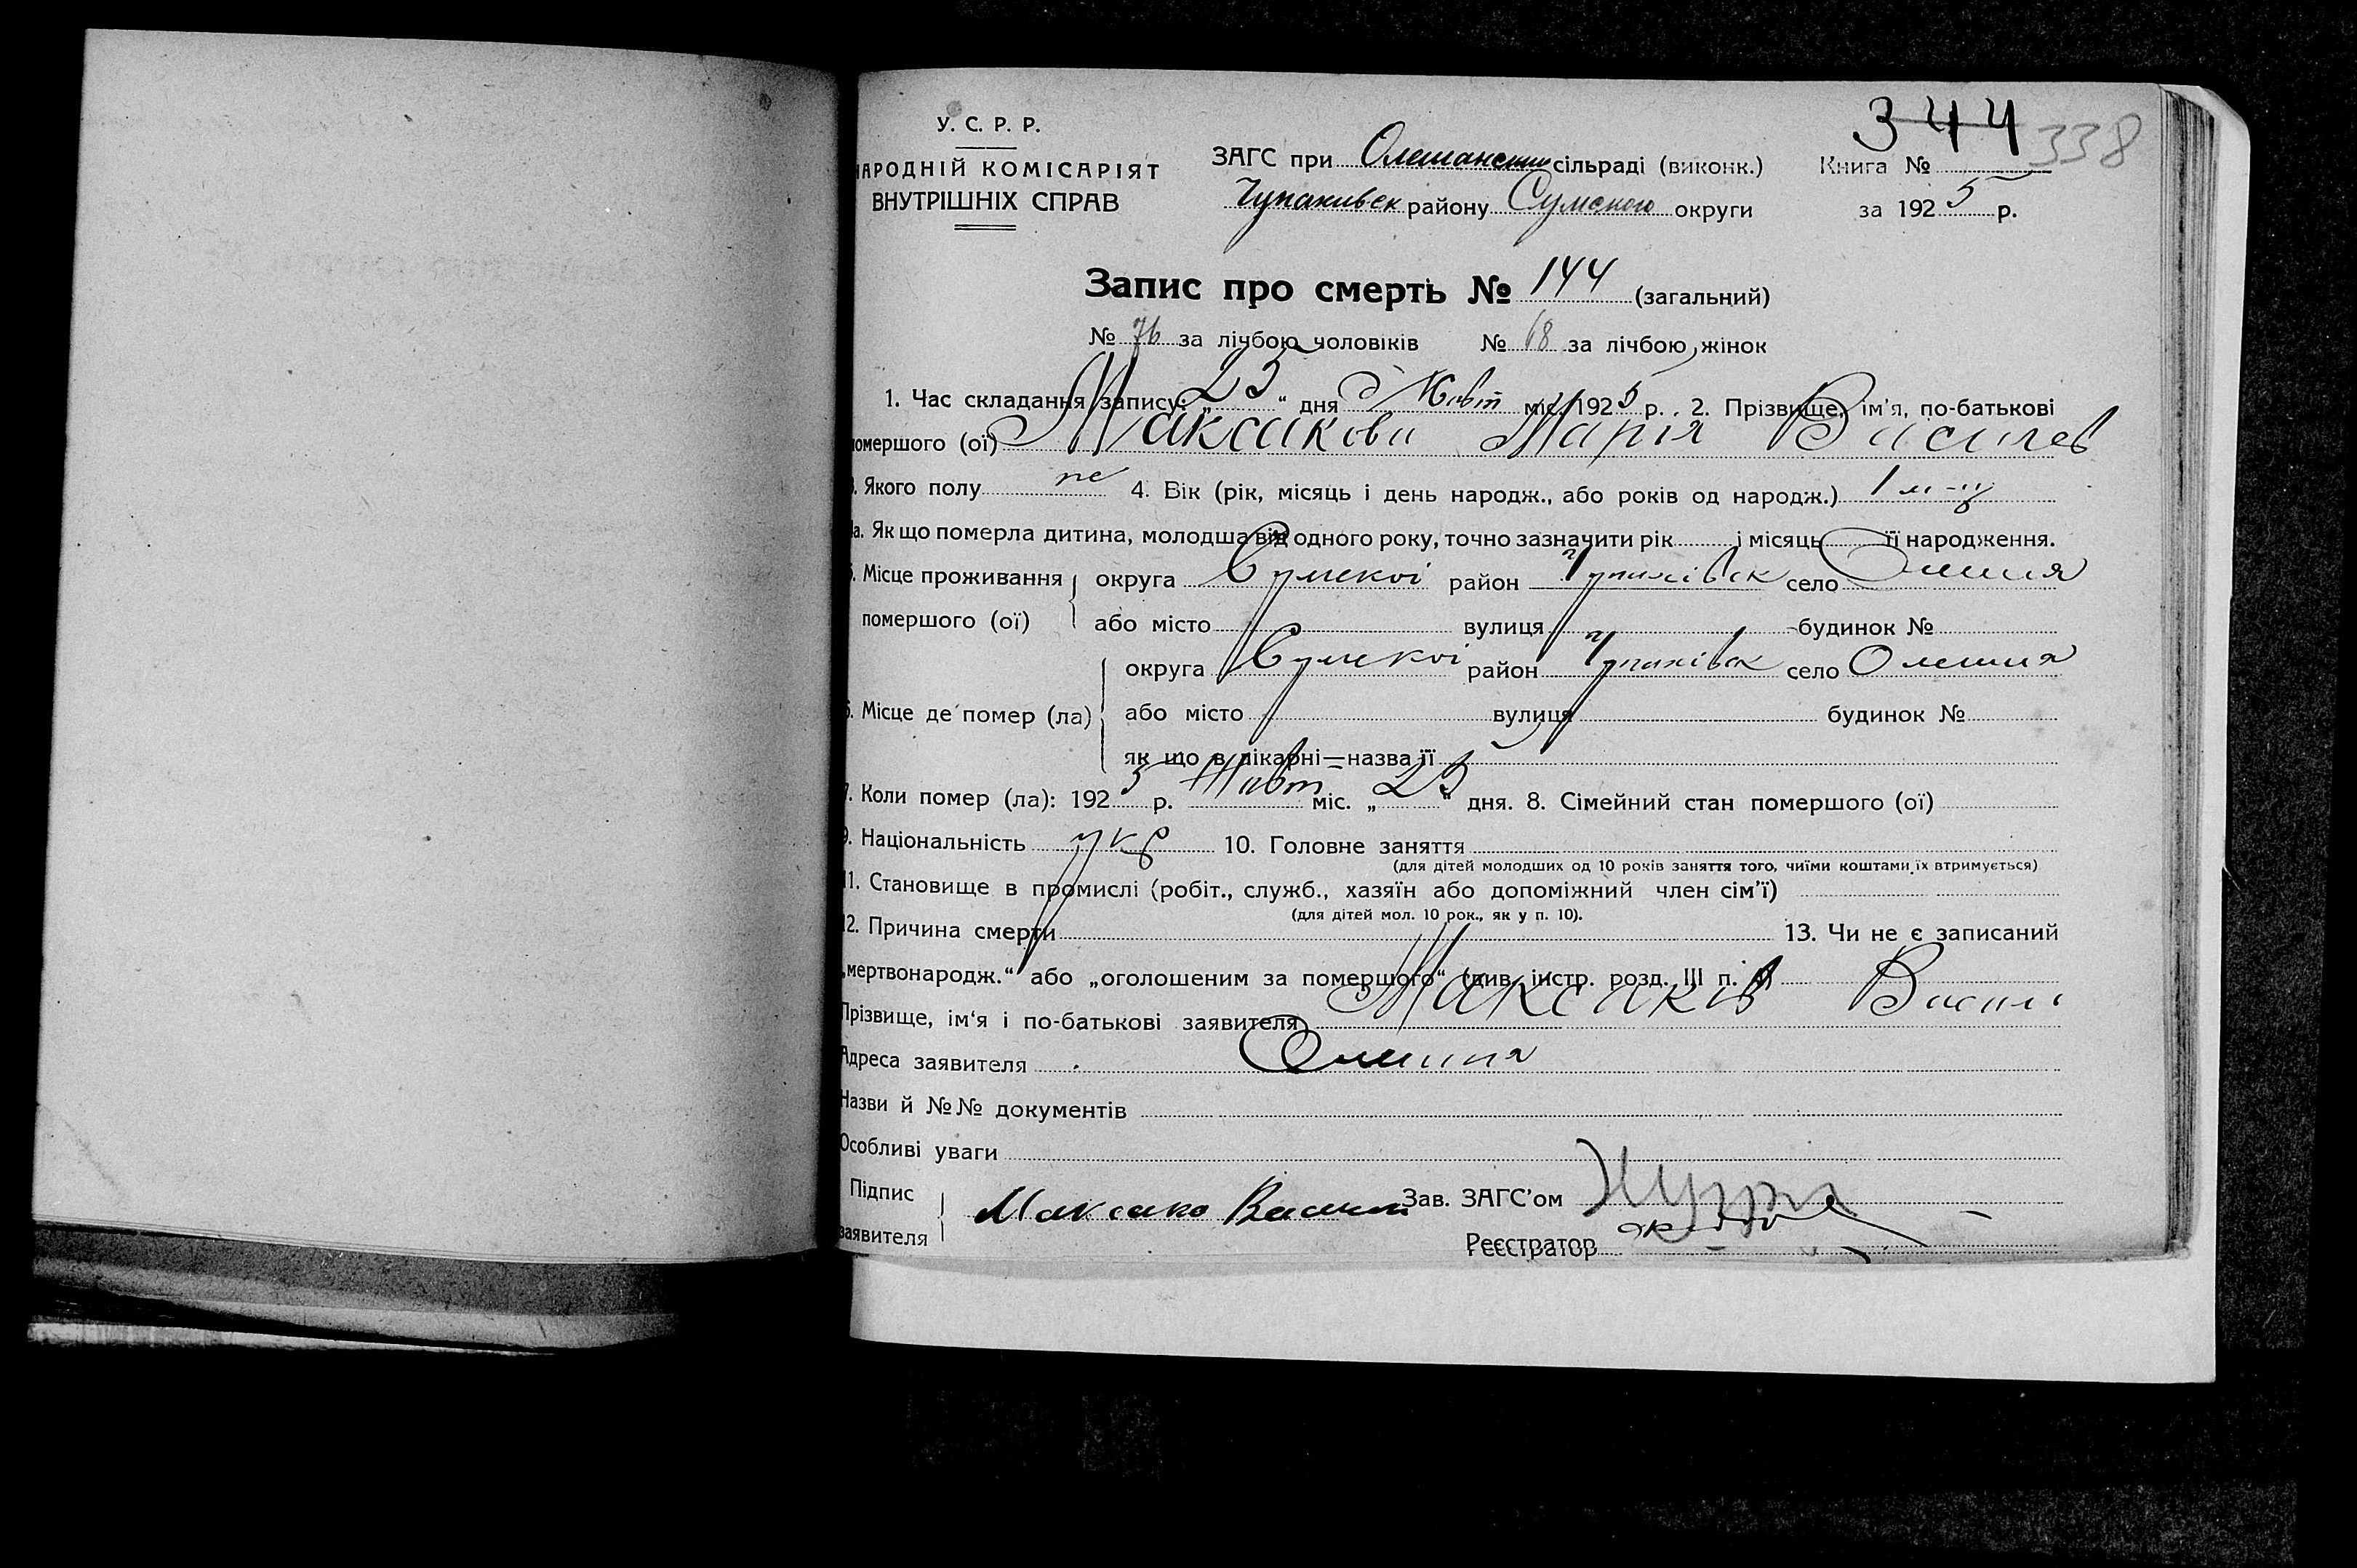 344 338
У. С. Р. Р.
НАРОДНІЙ КОМІСАРІЯТ
ВНУТРІШНІХ СПРАВ
ЗАГС при Олешанский сільраді (виконк.) Книга №
Чупахивск району Сумского округи за 1925 р.
Запис про смерть № 144 (загальний)
№ 76 за лічбою чоловіків № 68 за лічбою жінок
1. Час складання запису: „25“ дня Жовт міс. 1925 р. 2. Прізвище, ім'я, по-батькові
помершого (ої) Максакова Марія Василев
3. Якого полу 4. Вік (рік, місяць і день народж., або років од народж.) 1 м-ц
4а. Як що померла дитина, молодша від одного року, точно зазначити рік і місяць її народження.
5. Місце проживання округа Сумскої район Чупахівск село Олешня
помершого (ої) або місто вулиця будинок №
округа Сумскої район Чупахівск село Олешня
6. Місце де помер (ла) або місто вулиця будинок №
як що в лікарні—назва її
7. Коли помер (ла): 1925 р. Жовт міс. „25“ дня. 8. Сімейний стан помершого (ої)
9. Національність укр 10. Головне заняття
(для дітей молодших од 10 років заняття того, чиїми коштами їх втримується)
11. Становище в промислі (робіт., служб., хазяїн або допоміжний член сім'ї)
(для дітей мол. 10 рок., як у п. 10).
12. Причина смерти 13. Чи не є записаний
„мертвонародж.“ або „оголошеним за помершого“ (див. інстр. розд. III п.
Прізвище, ім'я і по-батькові заявителя Максаків Васил
Адреса заявителя Олешня
Назви й №№ документів
Особливі уваги
Підпис
заявителя Максако Васил
Зав. ЗАГС'ом
Реєстратор